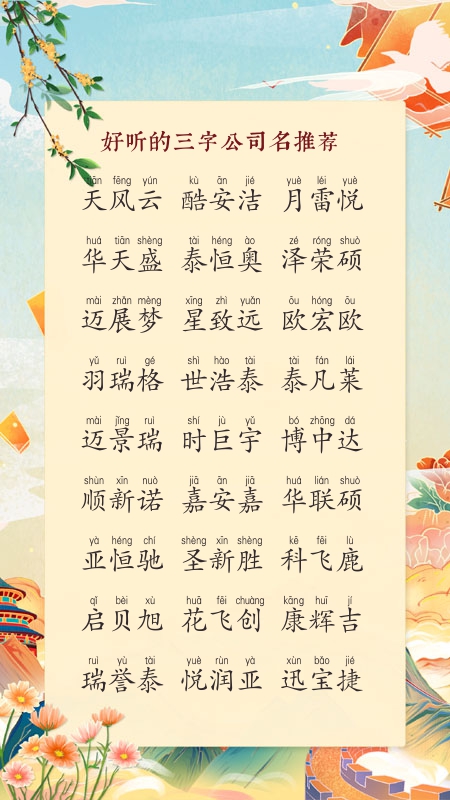 好听的三字公司名推荐
tiān fēng yún kù ān jié yuè léi yuè
天风云 酷安洁 月雷悦
huá tiān shèng tài héng ào zé róng shuò
华天盛 泰恒奥 泽荣硕
mài zhǎn mèng xīng zhì yuǎn ōu hóng ōu
迈展梦 星致远 欧宏欧
yǔ ruì gé shì hào tài tài fán lái
羽瑞格 世浩泰 泰凡莱
mài jǐng ruì shí jù yǔ bó zhōng dá
迈景瑞 时巨宇 博中达
shùn xīn nuò jiā ān jiā huá lián shuò
顺新诺 嘉安嘉 华联硕
yà héng chí shèng xīn shèng kē fēi lù
亚恒驰 圣新胜 科飞鹿
qǐ bèi xù huā fēi chuàng kāng huī jí
启贝旭 花飞创 康辉吉
ruì yù tài yuè rùn yà xùn bǎo jié
瑞誉泰 悦润亚 迅宝捷